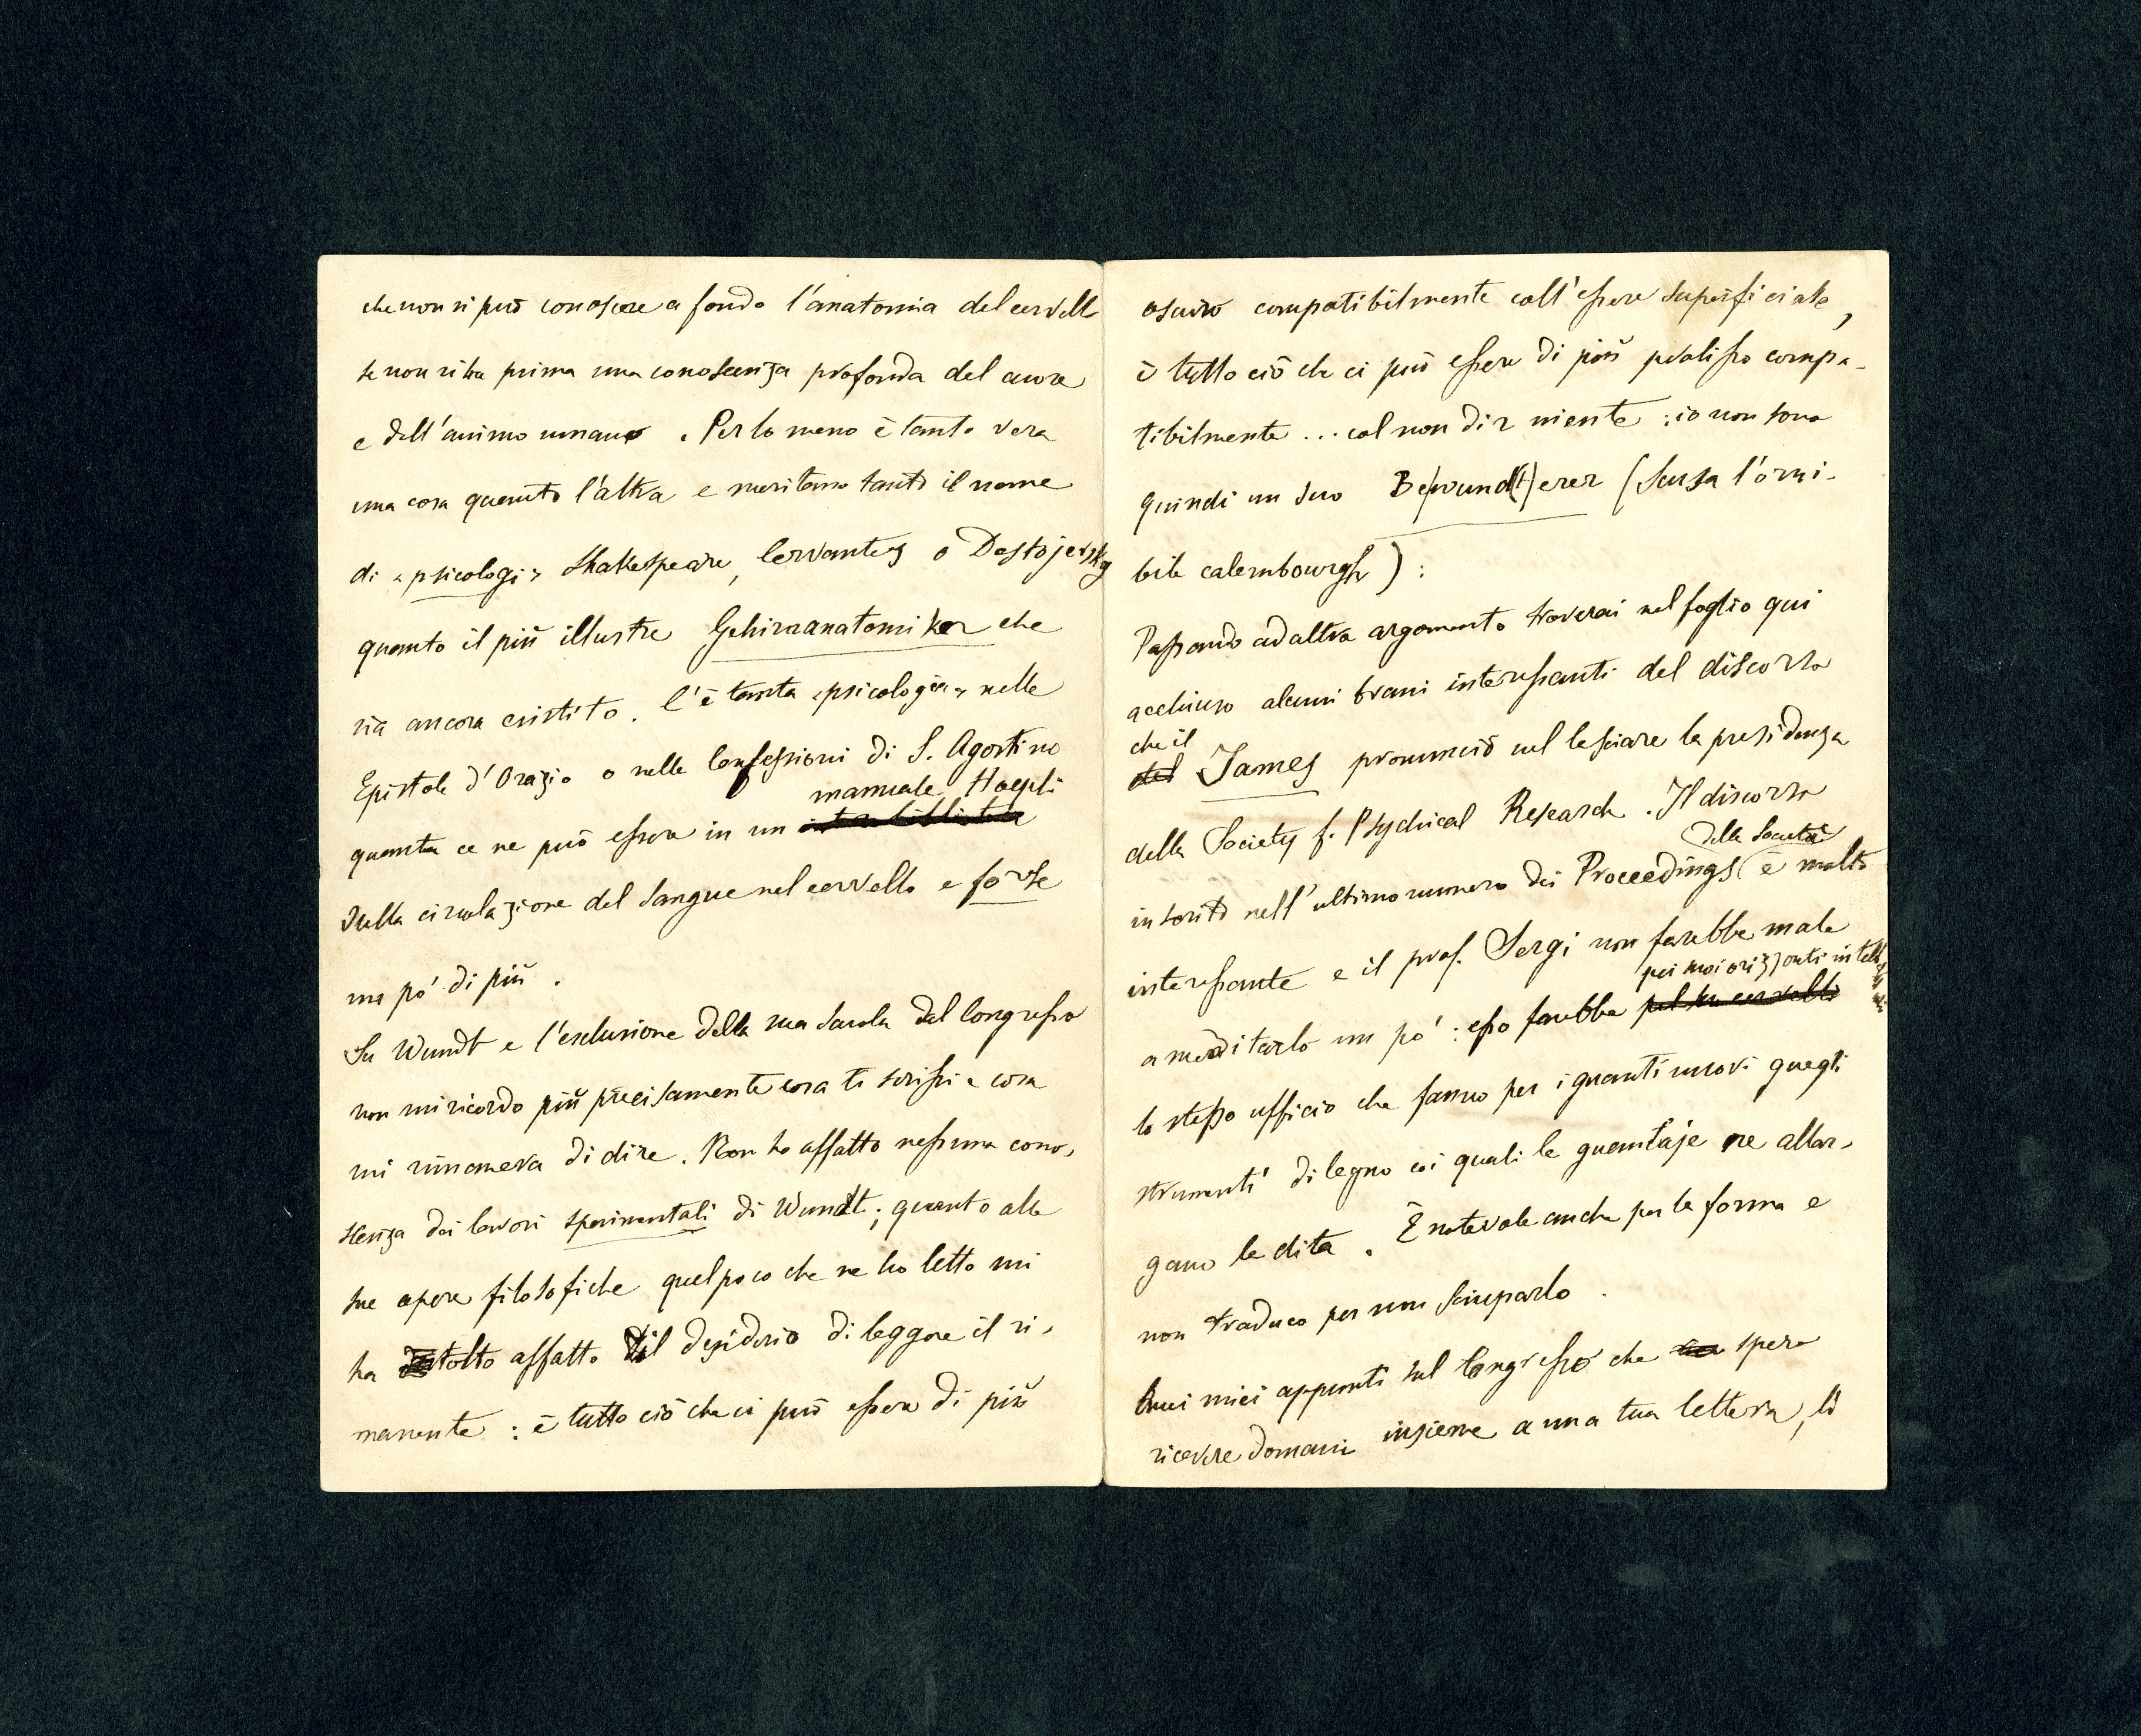 che non si può conoscere a fondo l'anatomia del cervello
se non si ha prima una conoscenza profonda del cuore
e dell'animo umano. Per lo meno è tanto vera
una cosa quanto l'altra e meritano tanto il nome
di "psicologi" Shakespeare, Cervantes o Dostojevsky
quanto il più illustre Gehirnanatomiker che
sia ancora esistito. C'è tanta "psicologia" nelle
Epistole d'Orazio o nelle Confessioni di S. Agostino
manuale Hoepli
quanta ce ne può essere in un
sulla circolazione del sangue nel cervello e forse
un pò di più.
Su Wundt e l'esclusione della sua scuola dal Congresso
non mi ricordo più precisamente cosa ti scrissi e cosa
mi rimaneva di dire. Non ho affatto nessuna cono-
scenza dei lavori sperimentali di Wundt; quanto alle
sue opere filosofiche quel poco che ne ho letto mi
ha tolto affatto il desiderio di leggere il ri-
manente: è tutto ciò che ci può essere di più
oscuro compatibilmente coll'essere superficiale,
è tutto ciò che ci può essere di più prolisso compa-
tibilmente ... col non dir niente: io non sono
quindi un suo Be(wund(t)erer (scusa l'orri-
bile calembourgh):
Passando ad altro argomento troverai nel foglio qui
acchiuso alcuni brani interessanti del discorso
che il
del James pronunciò nel lasciare la presidenza
della Society f. Psychical Research. Il discorso
della Società
inserito nell'ultimo numero dei Proceedings è molto
interessante e il prof. Sergi non farebbe male
pei suoi orizzonti intell
a meditarlo un pò: esso farebbe pel suo cervello
lo stesso ufficio che fanno per i guanti nuovi quegli
strumenti di legno coi quali le guantaje ne allar-
gano le dita. È notevole anche per la forma e
non traduco per non sciuparlo.
I miei appunti sul Congresso che spero
ricevere domani insieme a una tua lettera, li